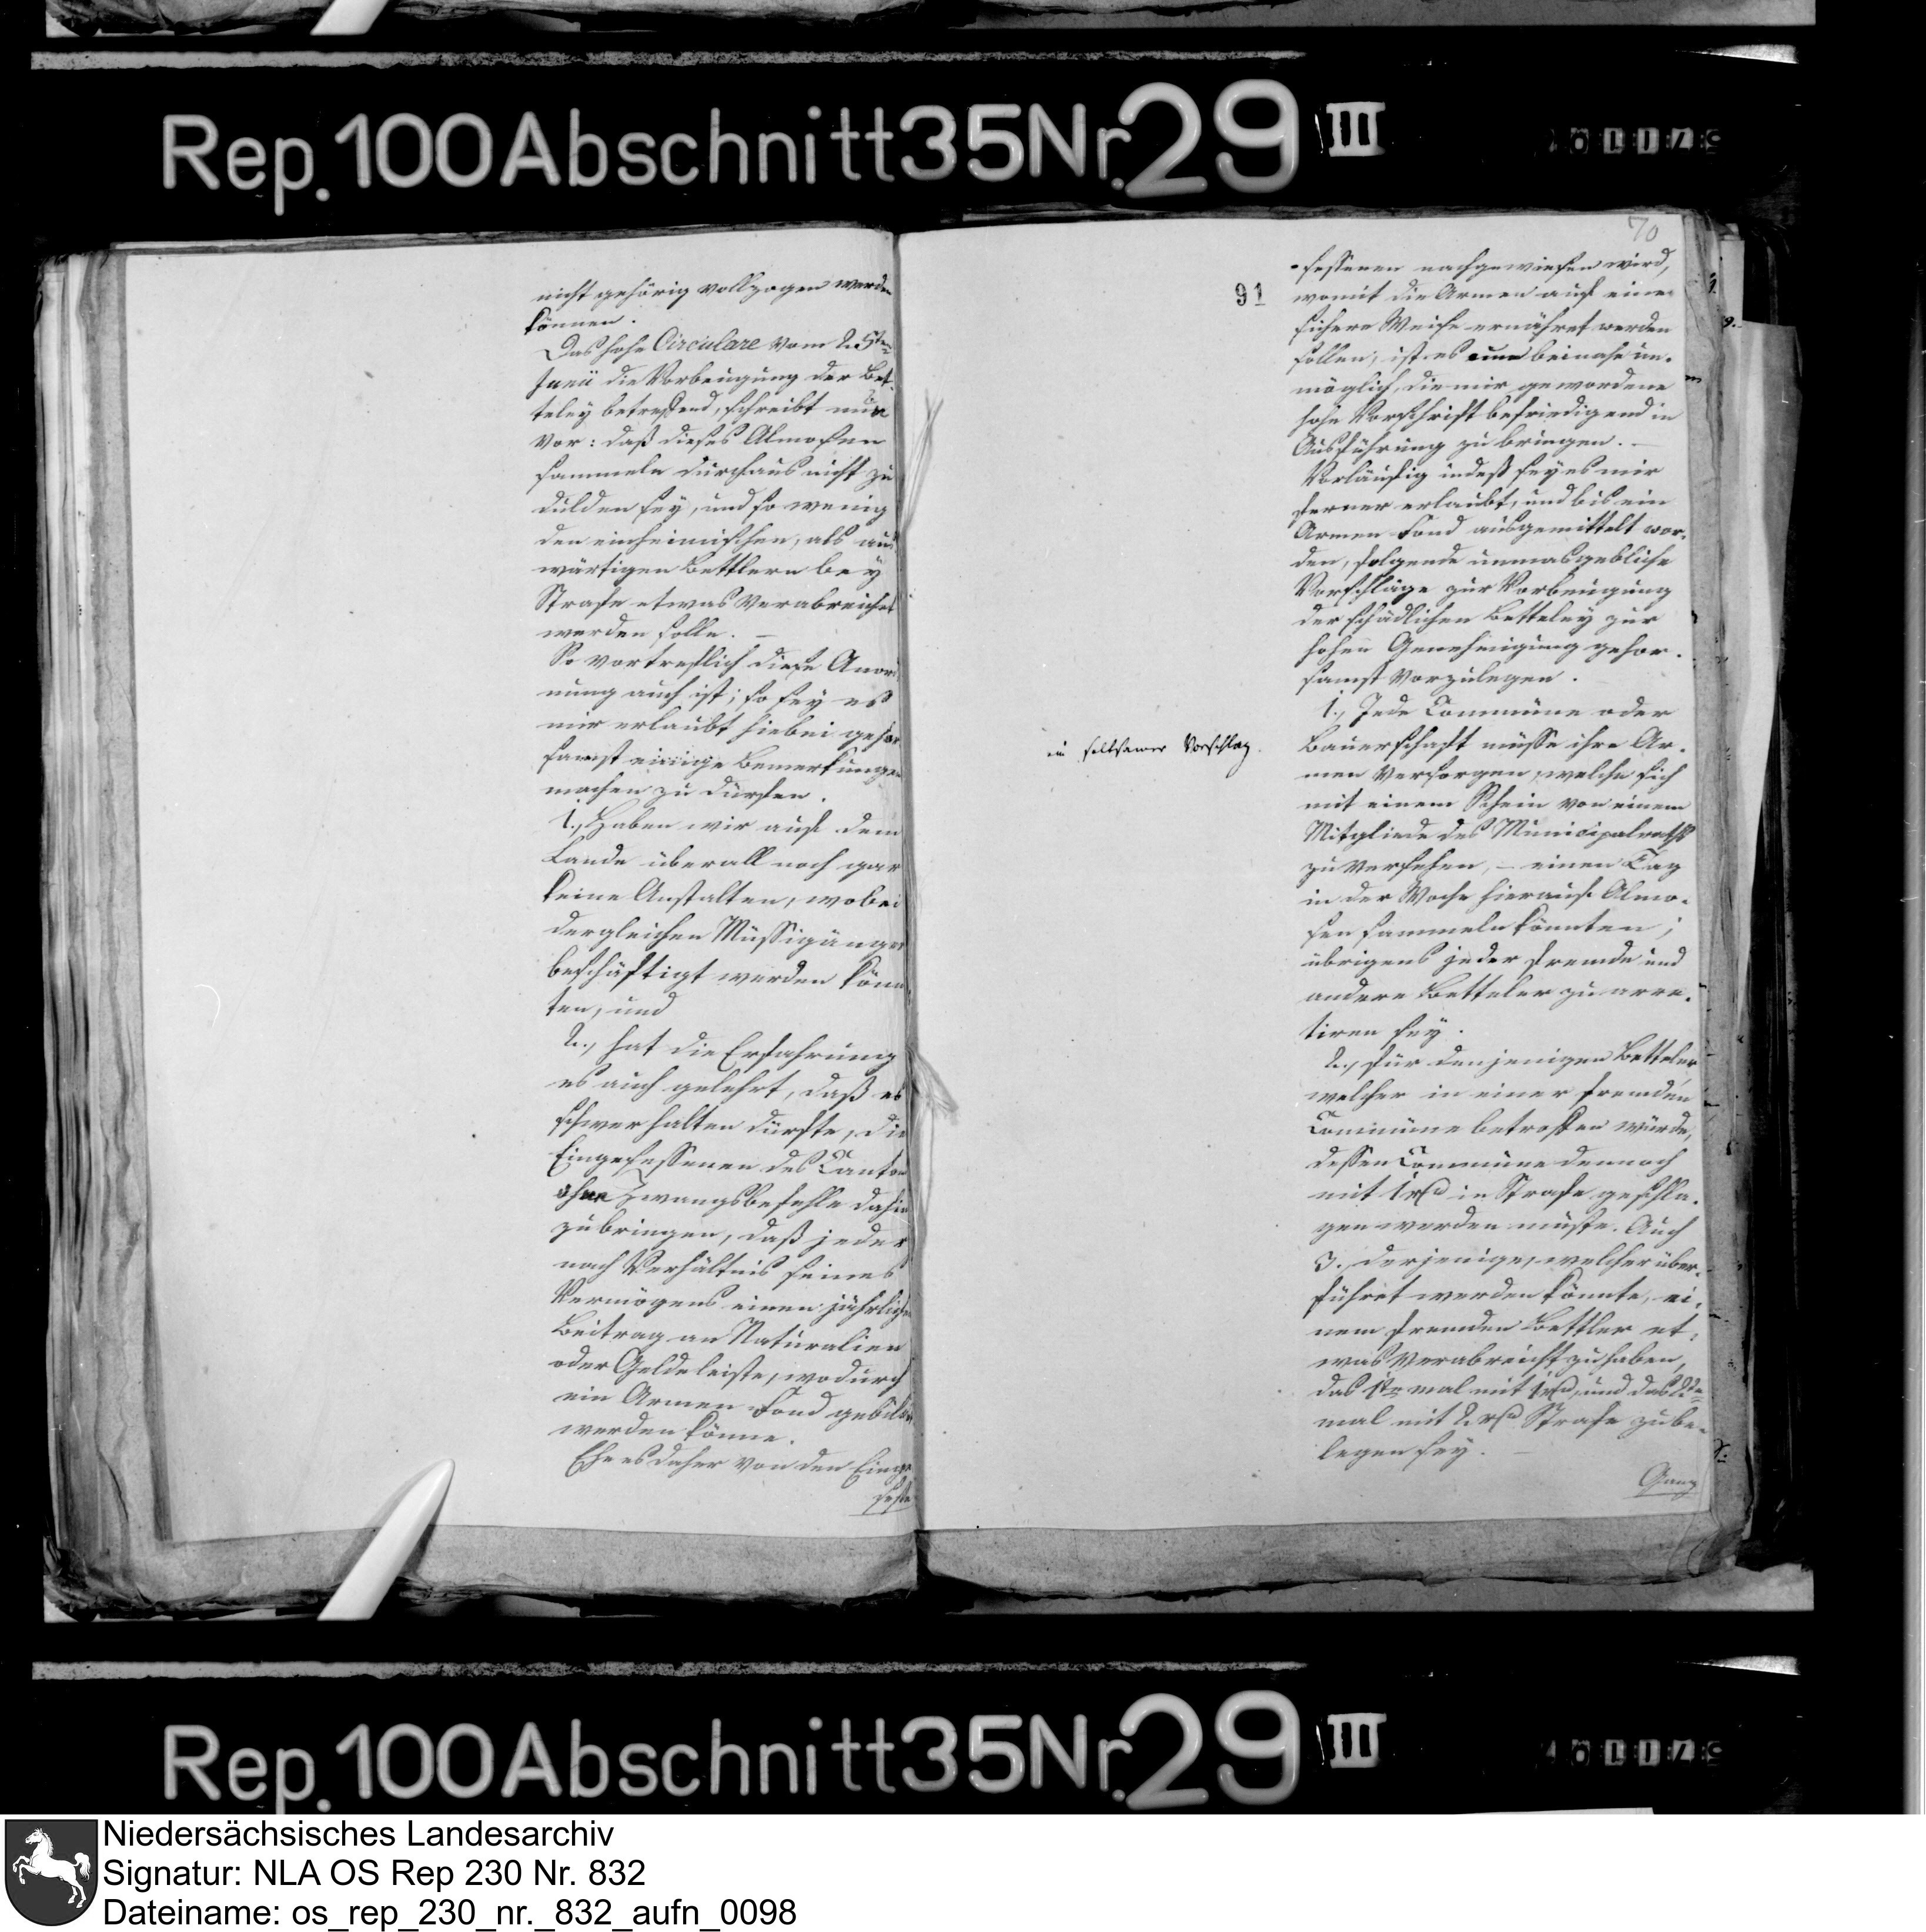 Rep. 100 Abschnitt 35 Nr. 29 III
nicht gehörig vollzogen werden
können.
Das hohe Circulare vom 25ten
Junii die Vorbeugung der Bet-
teley betreffend, schreibt nun
vor: daß dieses Almosen
sammeln durchaus nicht zu
dulden sey, und so wenig
den einheimischen, als aus
wärtigen Bettlern bey
Strafe etwas verabreichet
werden solle. –
So vortreflich diese Anord
nung auch ist; so sey es
mir erlaubt hiebei gehor
samst einige Bemerkungen
machen zu dürfen.
1., Haben wir auf dem
Lande überall noch gar
keine Anstalten, wobei
dergleichen Müssigänger
beschäftigt werden könn
ten, und
2., hat die Erfahrung
es auch gelehrt, daß es
schwer halten dürfte, die
Eingesessenen des Canton
ohne Zwangsbefehle dahin
zu bringen, daß jeder
nach Verhältnis seines
Vermögens einen jährlichen
Beitrag an Naturalien
oder Gelde leiste, wodurch
ein Armen Fond gebildet
werden könne.
Ehe es daher von den Einge
sesse
70
91
-sessenen nachgewiesen wird,
womit die Armen auf eine
sichere Weise ernähret werden
sollen, ist es beinahe un-
möglich, die mir gewordene
hohe Vorschrift befriedigend in
Ausführung zu bringen. –
Vorläufig indeß sey es mir
ferner erlaubt, und bis ein
Armen Fond ausgemittelt wor-
den, folgende unmasgebliche
Vorschläge zur Vorbeugung
der schädlichen Betteley zur
hohen Genehmigung gehor-
samst vorzulegen.
1., Jede Commüne oder
ein seltsamer Vorschlag.
Bauerschaft müsse ihre Ar-
men versorgen, welche sich
mit einem Schein von einem
Mitgliede des Municipalraths
zu versehen, – einen Tag
in der Woche hierauf Almo-
sen sammeln könnten;
übrigens jeder fremde und
andere Betteler zu arre-
tiren sey.
2., für denjenigen Betteler
welcher in einer fremden
Commüne betroffen würde,
dessen Commüne dennoch
mit 1 rh in Strafe geschla-
gen werden müste. Auch
3., derjenige, welcher über-
führet werden könnte, ei-
nem fremden Bettler et-
was verabreicht zu haben,
das 1te mal mit 1 rh, und das 2te
mal mit 2 rh Strafe zu be-
legen sey. –
Ganz
Rep. 100 Abschnitt 35 Nr. 29 III
Niedersächsisches Landesarchiv
Signatur: NLA OS Rep 230 Nr. 832
Dateiname: os_rep_230_nr._832_aufn_0098